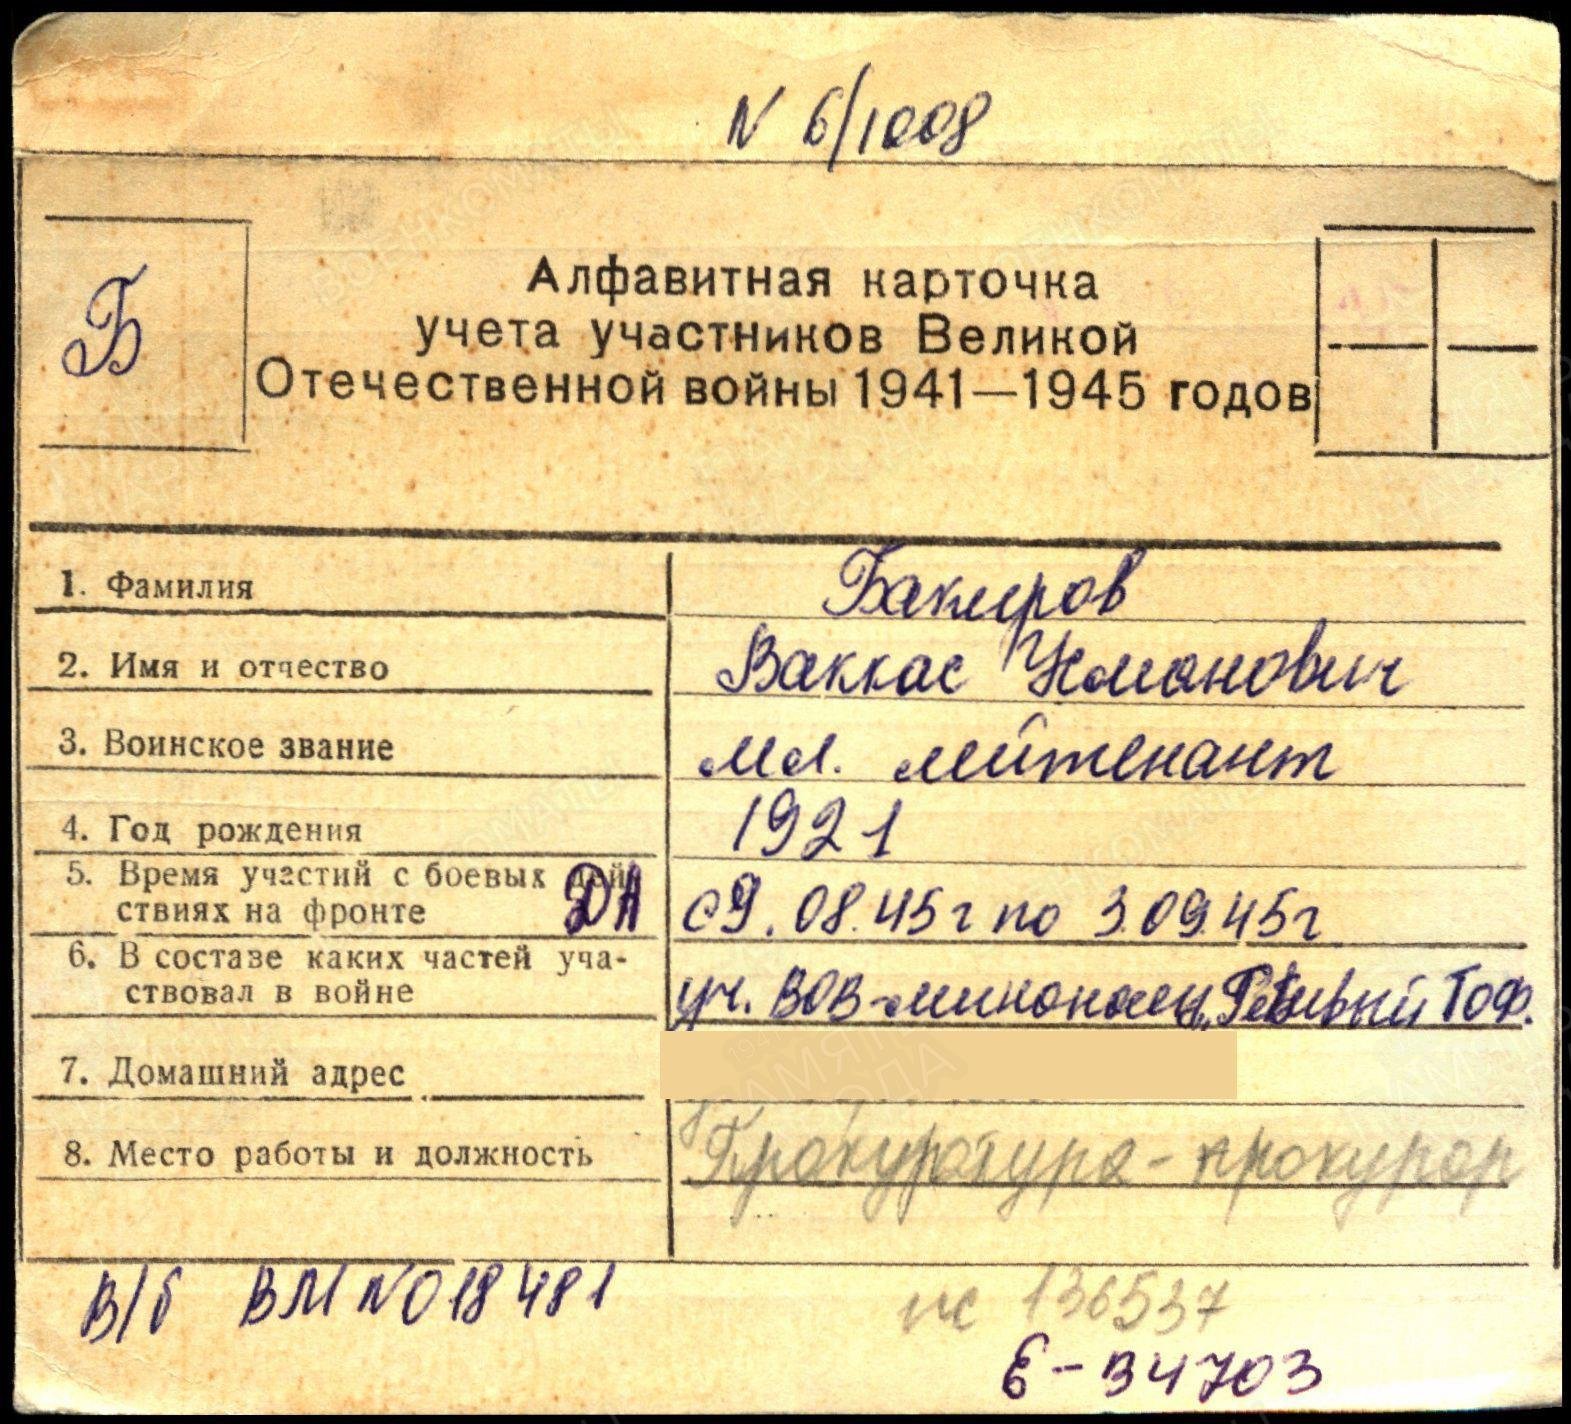 N 6/1008
Б
Алфавитная карточка
учета участников Великой
Отечественной войны 1941—1945 годов
1. Фамилия Бакиров
2. Имя и отчество Ваккас Усманович
3. Воинское звание мл. лейтенант
4. Год рождения 1921
5. Время участий с боевых дей
ствиях на фронте с 9.08.45г по 3.09.45г
6. В составе каких частей уча-
ствовал в войне уч. ВОВ-миноносец „Ретивый" ТОФ.
7. Домашний адрес
8. Место работы и должность Прокуратура - прокурор
В/б ВМ N018481
136537
Е-34703